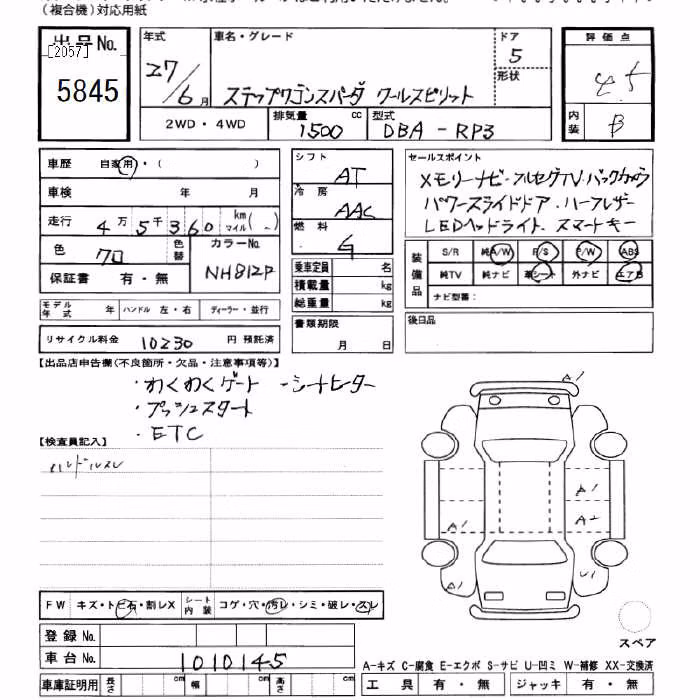 (複合機)対応用紙
出品No.
[2057]
5845
年式
27/6月
車名・グレード
ステップワゴンスパーダ クールスピリット
ドア
5
形状
2WD・4WD
排気量
1500cc
型式
DBA-RP3
評価点
4.5
内装
B
車歴 自家用・( )
車検 年 月
走行 4万5千360 km(マイル)
色 クロ 色替
カラーNo.
NH812P
保証書 有・無
モデル年式 年
ハンドル 左・右
ディーラー・並行
リサイクル料金 10230 円 預託済
シフト
AT
冷房
AAC
燃料
G
乗車定員 名
積載量 kg
総重量 kg
書類期限
月 日
セールスポイント
メモリーナビ・フルセグTV・バックカメラ
パワースライドドア・ハーフレザー
LEDヘッドライト・スマートキー
装備品
S/R 純A/W P/S P/W ABS
純TV 純ナビ 革シート 外ナビ エアB
ナビ型番:
後日品
【出品店申告欄(不良箇所・欠品・注意事項等)】
・わくわくゲート -シートヒーター
・プッシュスタート
・ETC
【検査員記入】
ハンドルスレ
A1
A1
A2
A1
A1
U1
スペア
FW キズ・トビ石・割レX
シート内装 コゲ・穴・汚レ・シミ・破レ・スレ
登録No.
車台No. 1010145
車庫証明用 長さ cm 幅 cm 高さ cm
A-キズ C-腐食 E-エクボ S-サビ U-凹ミ W-補修 XX-交換済
工具 有・無 ジャッキ 有・無